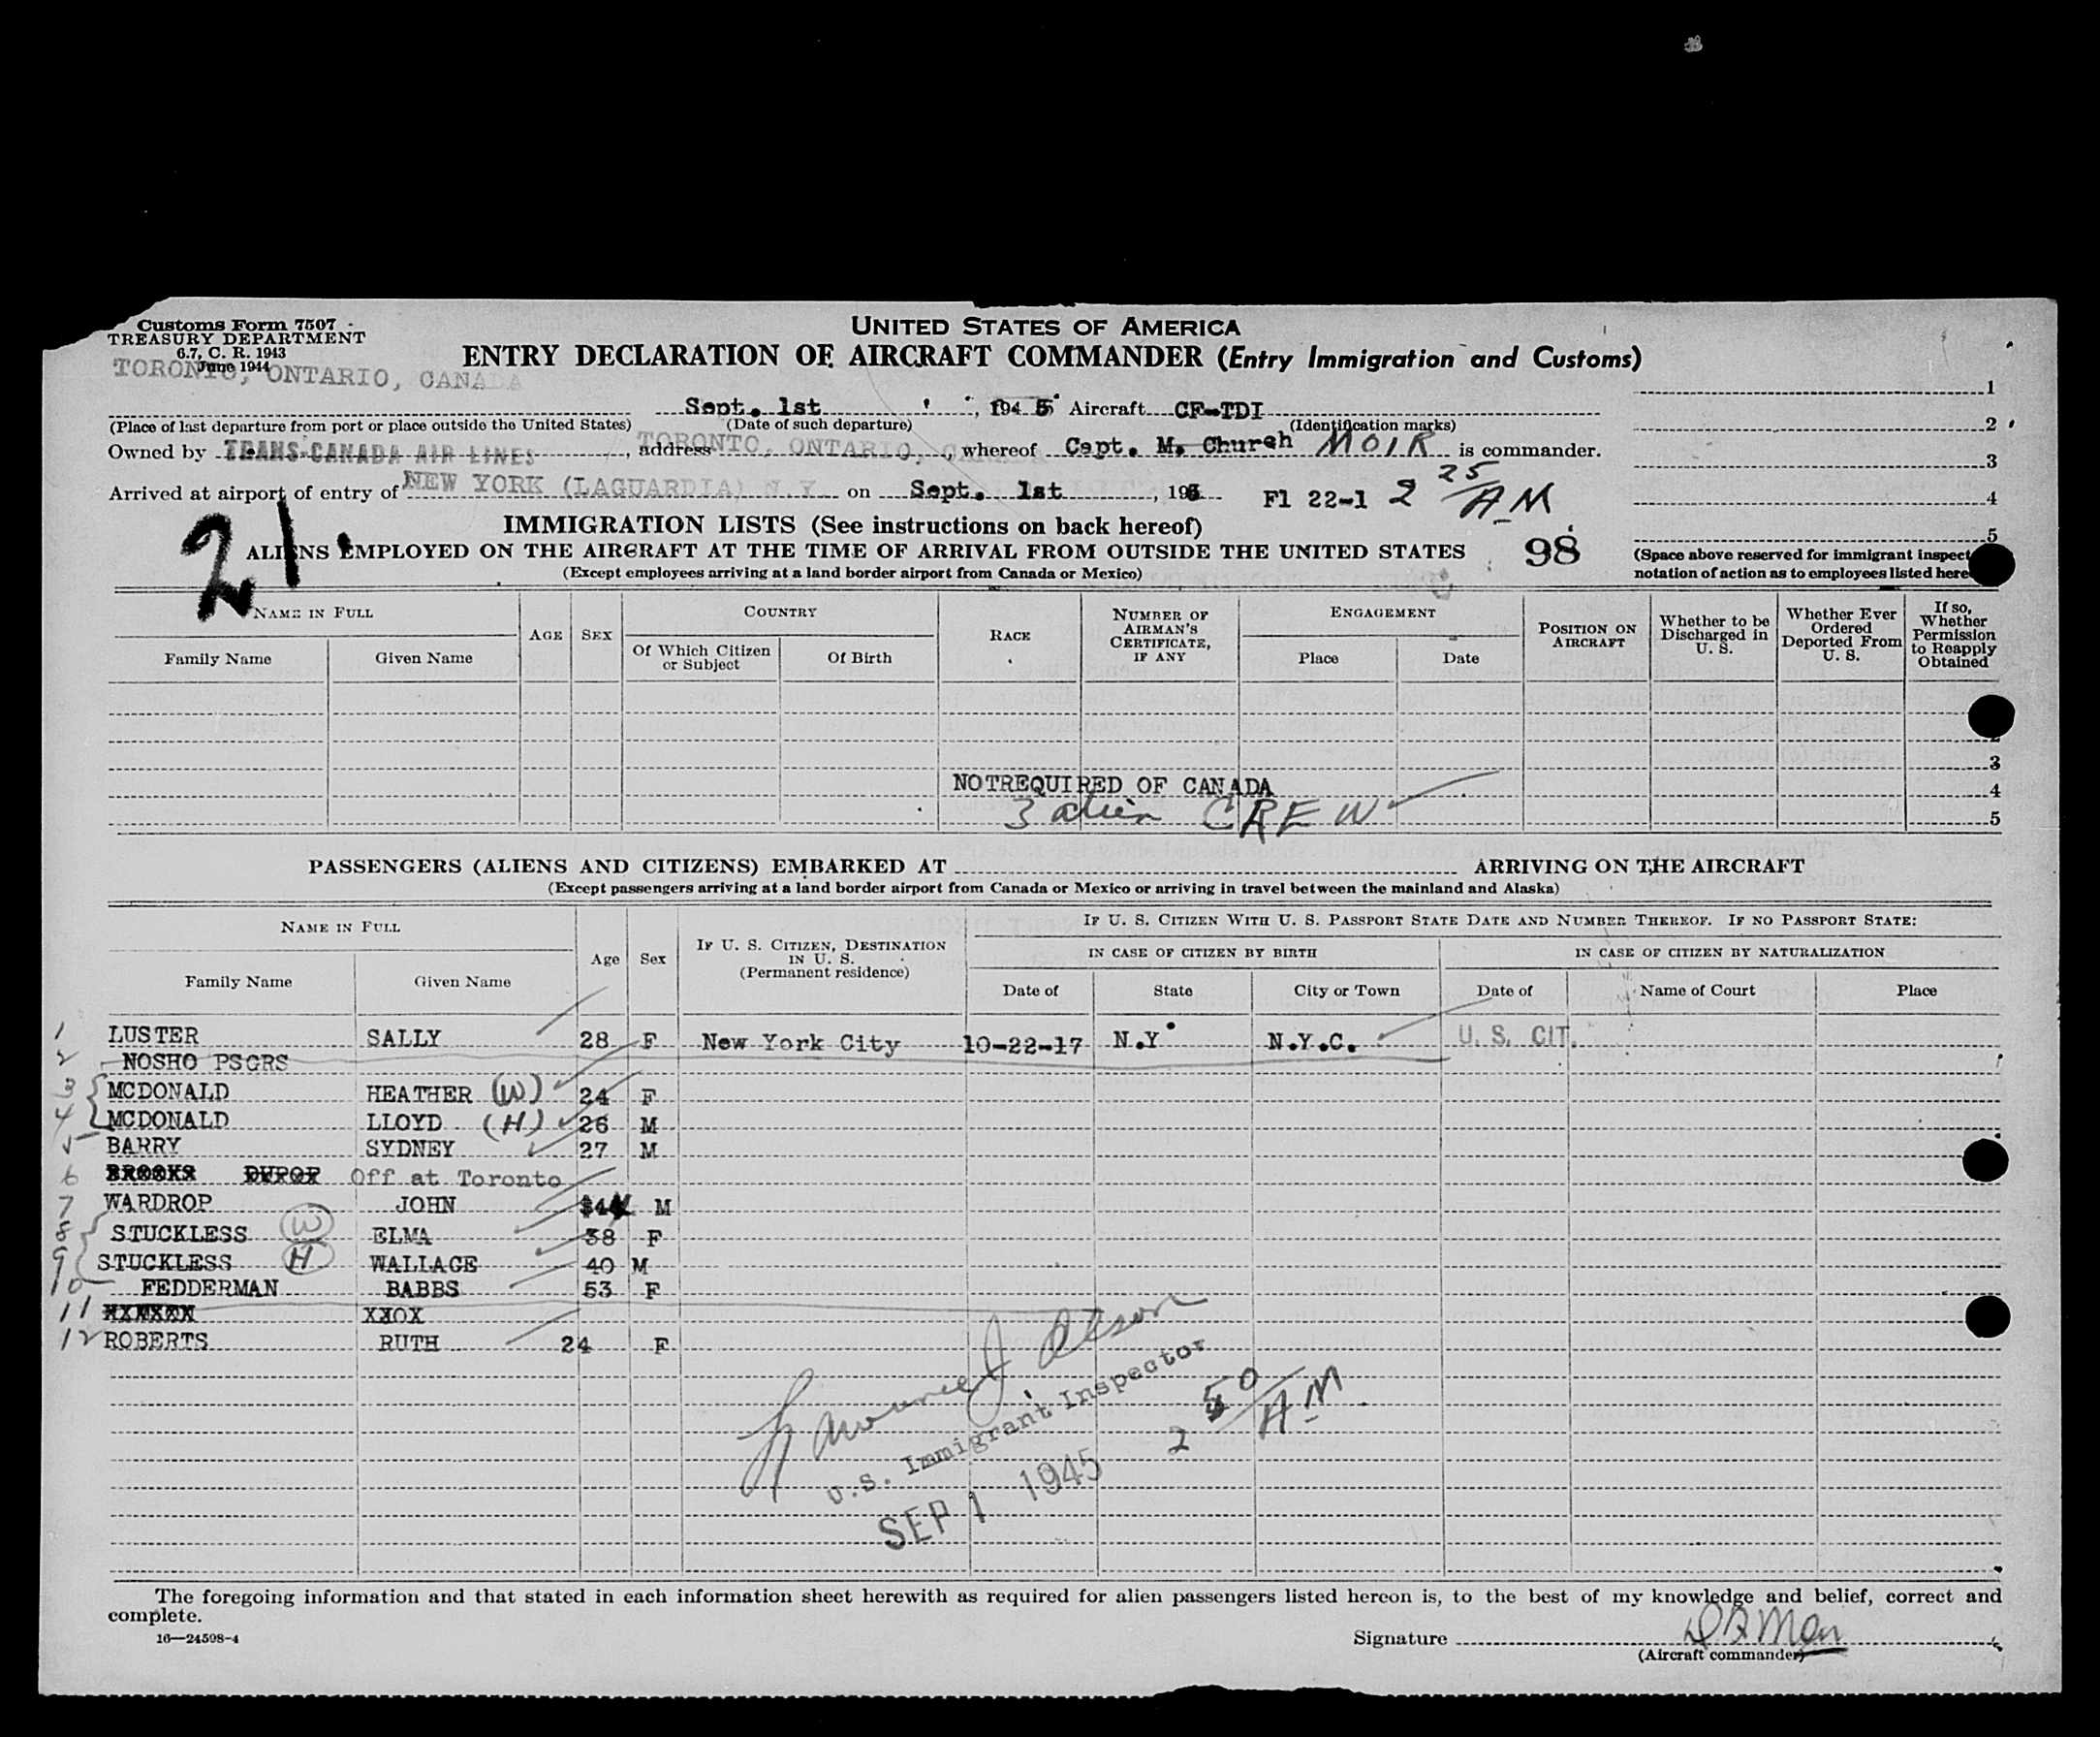 Customs Form 7507
TREASURY DEPARTMENT
6.7, C. R. 1943
June 1944
UNITED STATES OF AMERICA
ENTRY DECLARATION OF AIRCRAFT COMMANDER (Entry Immigration and Customs)
TORONTO, ONTARIO, CANADA
Sept. 1st , 1945 Aircraft CF-TDI
(Place of last departure from port or place outside the United States) (Date of such departure) (Identification marks)
Owned by TRANS-CANADA AIR LINES, address TORONTO, ONTARIO, CANADA, whereof Capt. M. Church MOIR is commander.
Arrived at airport of entry of NEW YORK (LAGUARDIA) N.Y. on Sept. 1st, 195 Fl 22-1 2 25/AM
1
2
3
4
5
(Space above reserved for immigrant inspect
notation of action as to employees listed here
21
IMMIGRATION LISTS (See instructions on back hereof)
ALIENS EMPLOYED ON THE AIRCRAFT AT THE TIME OF ARRIVAL FROM OUTSIDE THE UNITED STATES 98
(Except employees arriving at a land border airport from Canada or Mexico)
NAME IN FULL
Family Name Given Name
AGE SEX
COUNTRY
Of Which Citizen or Subject Of Birth
RACE
NUMBER OF AIRMAN'S CERTIFICATE, IF ANY
ENGAGEMENT
Place Date
POSITION ON AIRCRAFT
Whether to be Discharged in U. S.
Whether Ever Ordered Deported From U. S.
If so, Whether Permission to Reapply Obtained
2
3
NOTREQUIRED OF CANADA 4
3 alien CREW 5
PASSENGERS (ALIENS AND CITIZENS) EMBARKED AT ARRIVING ON THE AIRCRAFT
(Except passengers arriving at a land border airport from Canada or Mexico or arriving in travel between the mainland and Alaska)
NAME IN FULL
Family Name Given Name
Age Sex
IF U. S. CITIZEN, DESTINATION IN U. S. (Permanent residence)
IF U. S. CITIZEN WITH U. S. PASSPORT STATE DATE AND NUMBER THEREOF. IF NO PASSPORT STATE:
IN CASE OF CITIZEN BY BIRTH IN CASE OF CITIZEN BY NATURALIZATION
Date of State City or Town Date of Name of Court Place
1 LUSTER SALLY 28 F New York City 10-22-17 N.Y N.Y.C. U. S. CIT.
2 NOSHO PSGRS
3 MCDONALD HEATHER (W) 24 F
4 MCDONALD LLOYD (H) 26 M
5 BARRY SYDNEY 27 M
6 BROOKS Off at Toronto
7 WARDROP JOHN 44 M
8 STUCKLESS W ELMA 38 F
9 STUCKLESS H WALLACE 40 M
10 FEDDERMAN BABBS 53 F
11 XXOX
12 ROBERTS RUTH 24 F
Lawrence J
U.S. Immigrant Inspector
2 50/AM
SEP 1 1945
The foregoing information and that stated in each information sheet herewith as required for alien passengers listed hereon is, to the best of my knowledge and belief, correct and
complete.
16—24598-4
Signature
(Aircraft commander)